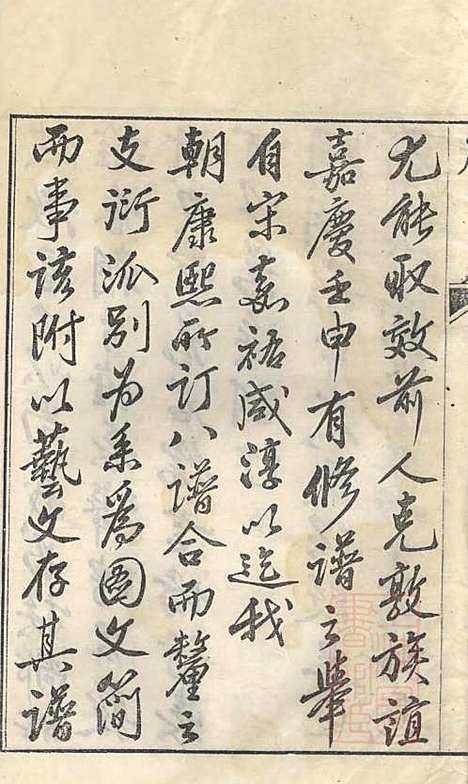 尤能取效前人克敦族誼
嘉慶壬申有修譜之舉
自宋嘉祐咸淳以迄我
朝康熙所訂八譜合而釐之
支衍派別为系為圖文簡
而事該附以藝文存其譜